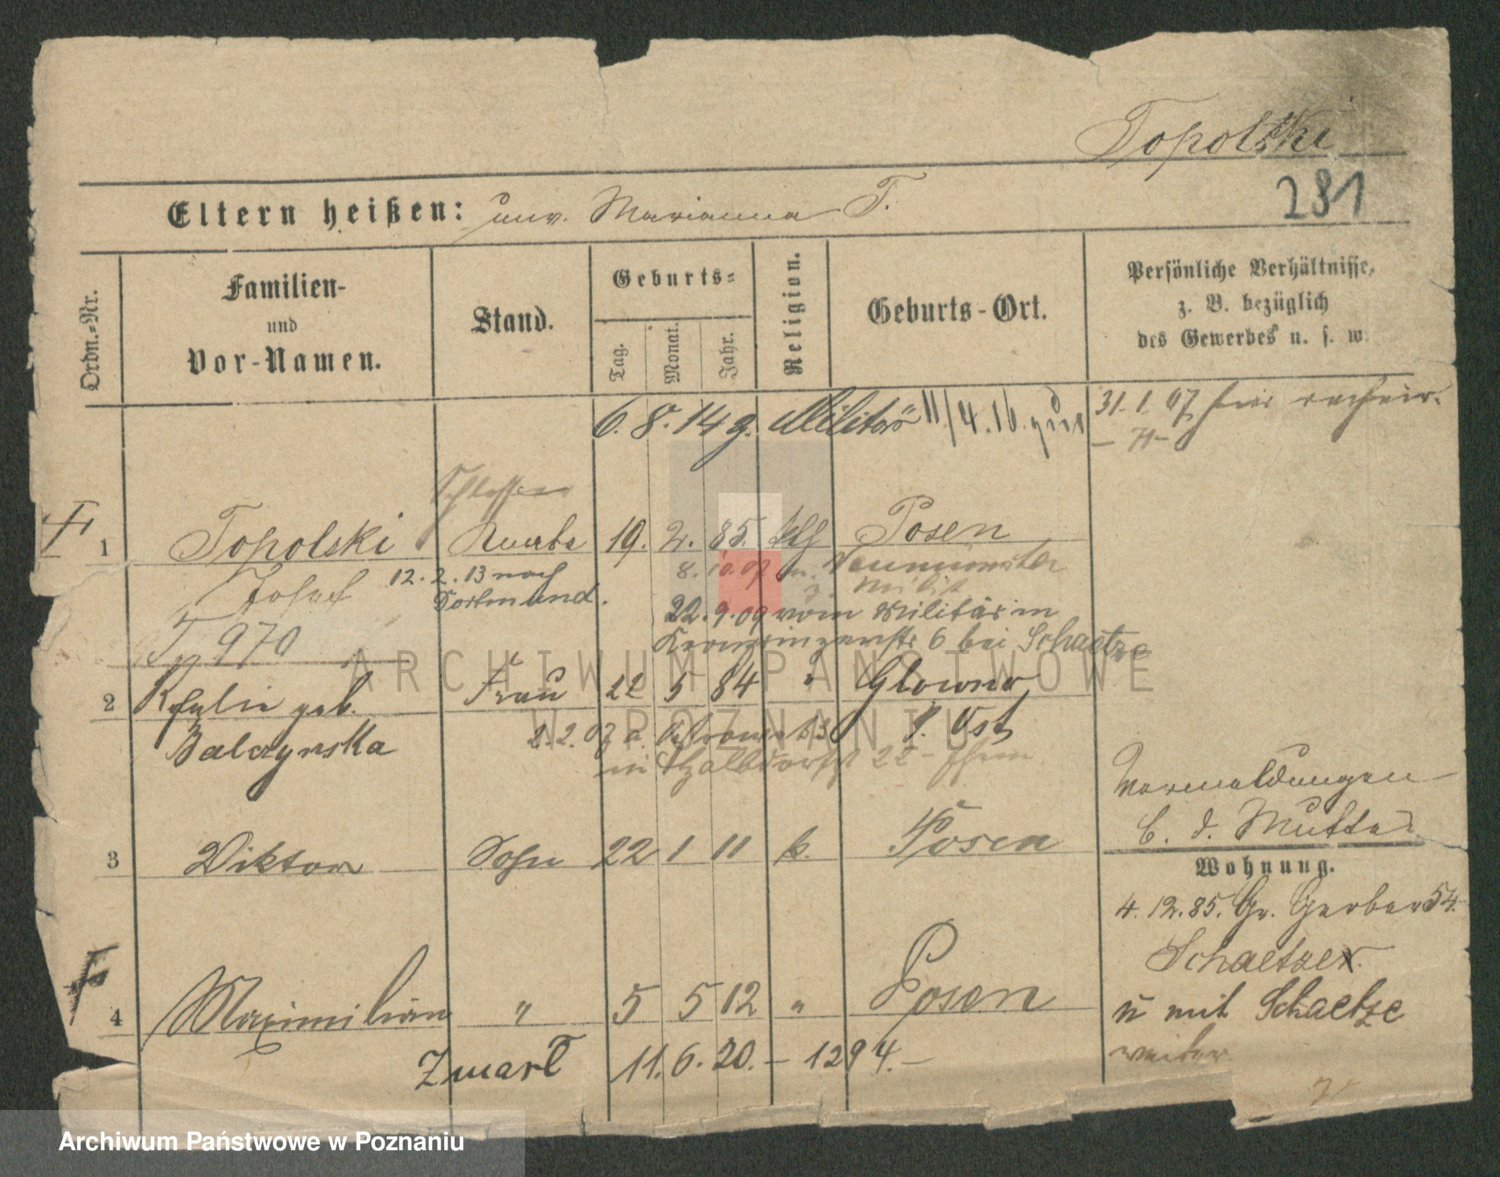 Topolski
281
Eltern heißen: unv. Marianna T.
Ordn.-Nr.
Familien-
und
Vor-Namen.
Stand.
Geburts-
Tag.
Monat.
Jahr.
Religion.
Geburts-Ort.
Persönliche Verhältnisse,
z. B. bezüglich
des Gewerbes u. s. w.
6. 8. 14 g. Militär 11/4. 16.
31. 1. 07 hier
Schlosser
1 Topolski Knabe 19. 2. 85. kth Posen
Josef 12. 2. 13 nach
Dortmund.
8. 10. 07 n. Neumünster
z. Milit
22. 9. 09 vom Militär in
Kronprinzenstr 6 bei Schaetze
970
2 geb. Frau 22 5 84 " Glowno
Balczynska
P. Ost
3 Viktor Sohn 22 1 11 k. Posen
Vormeldungen
b. d. Mutter
Wohnung.
4. 12. 85. Gr. Gerber 54.
Schaetzer.
u mit Schaetze
weiter
4 Maximilian " 5 5 12 " Posen
Zmarł 11. 6. 20. – 1294. –
ARCHIWUM PAŃSTWOWE
W POZNANIU
Archiwum Państwowe w Poznaniu